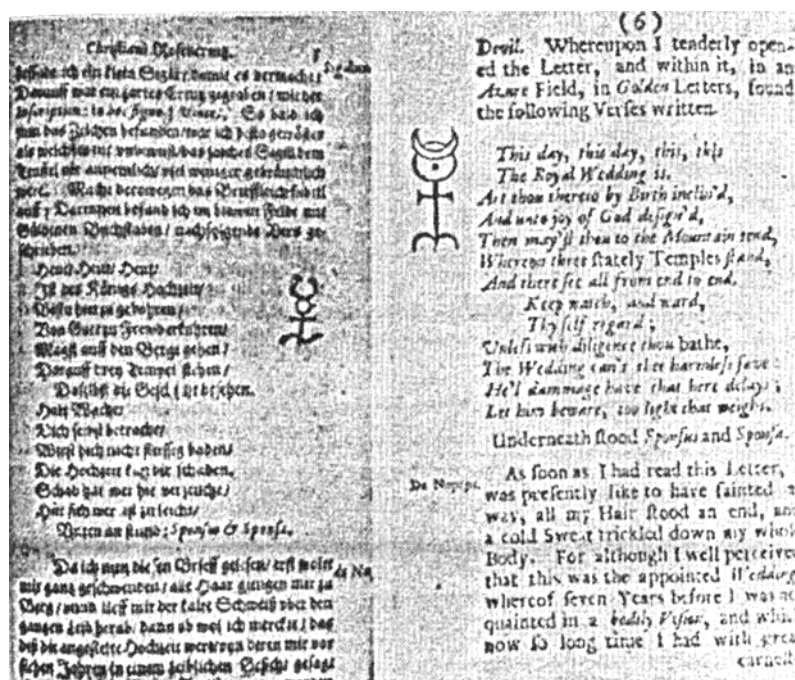 Christiani Rosencreutz.
ich ein klein damit es vermacht
Darauff war ein zartes Creutz gegraben / mit der
Inscription: in hoc signo vinces. So bald ich
nun das Zeichen befunden / ward ich desto getröster
als welchem nit unbewust / das solches Sigill dem
Teuffel nit annemlich / viel weniger gebräuchlich
were. Machte derowegen das
auff / Darinnen befand ich im blawen Felde mit
Güldenen Buchstaben / nachfolgende Vers ge-
schrieben.
Heut / Heut / Heut /
Ist des Königs Hochzeit /
Bistu hier zu gebohren /
Von Gott zu Frewd erkohren /
Magst auff den Berge gehen /
Darauff drey Tempel stehen /
Daselbst die Geschicht besehen.
Halt Wacht /
Dich selbst betracht /
Wirst dich nicht fleissig baden /
Die Hochzeit kan dir schaden.
Schad hat wer hie verzeucht /
Hüt sich wer ist zu leicht /
Unten an stund: Sponsus & Sponsa.
Da ich nun diesen Brieff gelesen / erst wolte
mir gantz geschwunden / alle Haar giengen mir zu
Berg / unnd lieff mir der kalte Schweiß über den
gantzen Leib herab / dann ob wol ich merckte / das
diß die angestelte Hochzeit were / von deren mir vor
sieben Jahren in einem leiblichen Gesicht gesagt
(6)
Devil. Whereupon I tenderly open-
ed the Letter, and within it, in an
Azure Field, in Golden Letters, found
the following Verses written.
This day, this day, this, this
The Royal Wedding is.
Art thou thereto by Birth inclin'd,
And unto joy of God design'd,
Then may'st thou to the Mountain tend,
Whereon three stately Temples stand,
And there see all from end to end.
Keep watch, and ward,
Thy self regard;
Unless with diligence thou bathe,
The Wedding can't thee harmless save:
He'l dammage have that here delays;
Let him beware, too light that weighs.
Underneath stood Sponsus and Sponsa.
As soon as I had read this Letter, I
was presently like to have fainted a
way, all my Hair stood an end, and
a cold Sweat trickled down my whole
Body. For although I well perceived
that this was the appointed Wedding
whereof seven Years before I was ac
quainted in a bodily Vision, and which
now so long time I had with great
earnest